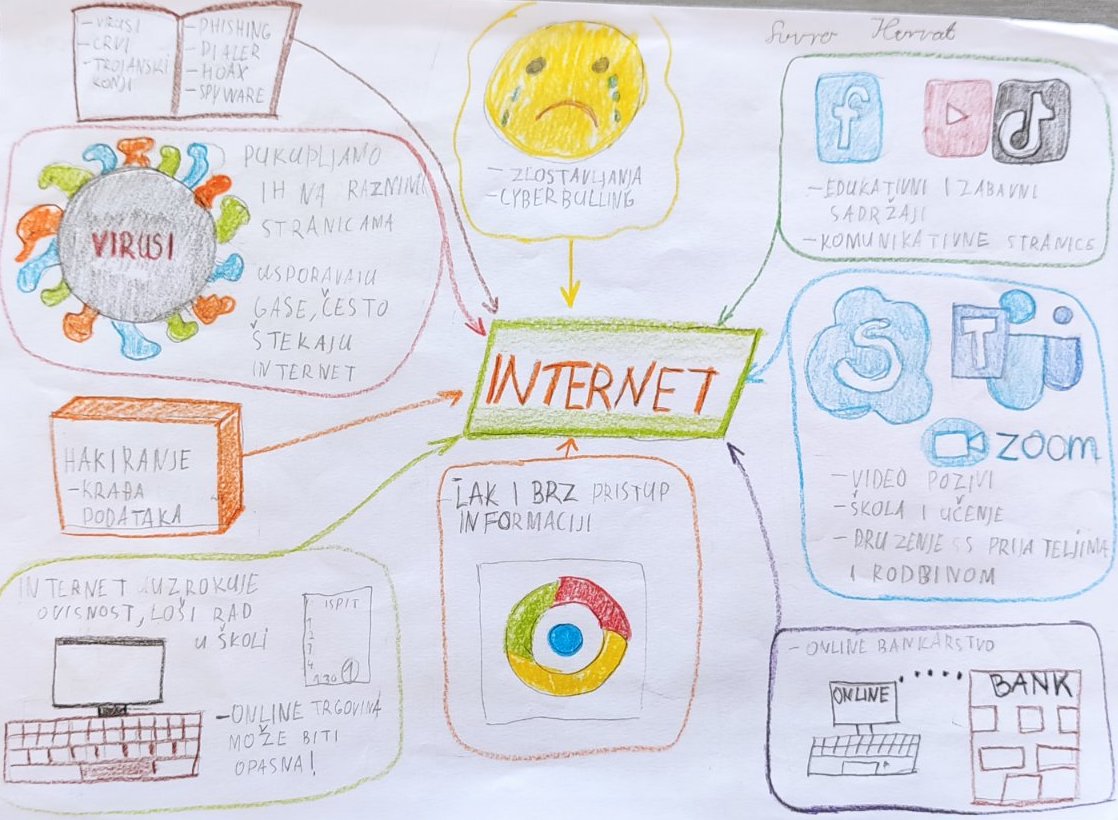 Suvro Horvat
- VIRUSI
- CRVI
- TROJANSKI
KONJI
- PHISHING
- DIALER
- HOAX
- SPYWARE
- ZLOSTAVLJANJA
- CYBERBULLING
- EDUKATIVNI I ZABAVNI
SADRŽAJI
- KOMUNIKATIVNE STRANICE
VIRUSI
PUKUPLJAMO
IH NA RAZNIM
STRANICAMA
USPORAVAJU
GASE, ČESTO
ŠTEKAJU
INTERNET
INTERNET
S
T
ZOOM
- VIDEO POZIVI
- ŠKOLA I UČENJE
- DRUŽENJE S PRIJATELJIMA
I RODBINOM
HAKIRANJE
- KRAĐA
PODATAKA
- LAK I BRZ PRISTUP
INFORMACIJI
INTERNET UZROKUJE
OVISNOST, LOŠI RAD
U ŠKOLI
ISPIT
1
2
3
4
1
- ONLINE TRGOVINA
MOŽE BITI
OPASNA!
- ONLINE BANKARSTVO
ONLINE
BANK